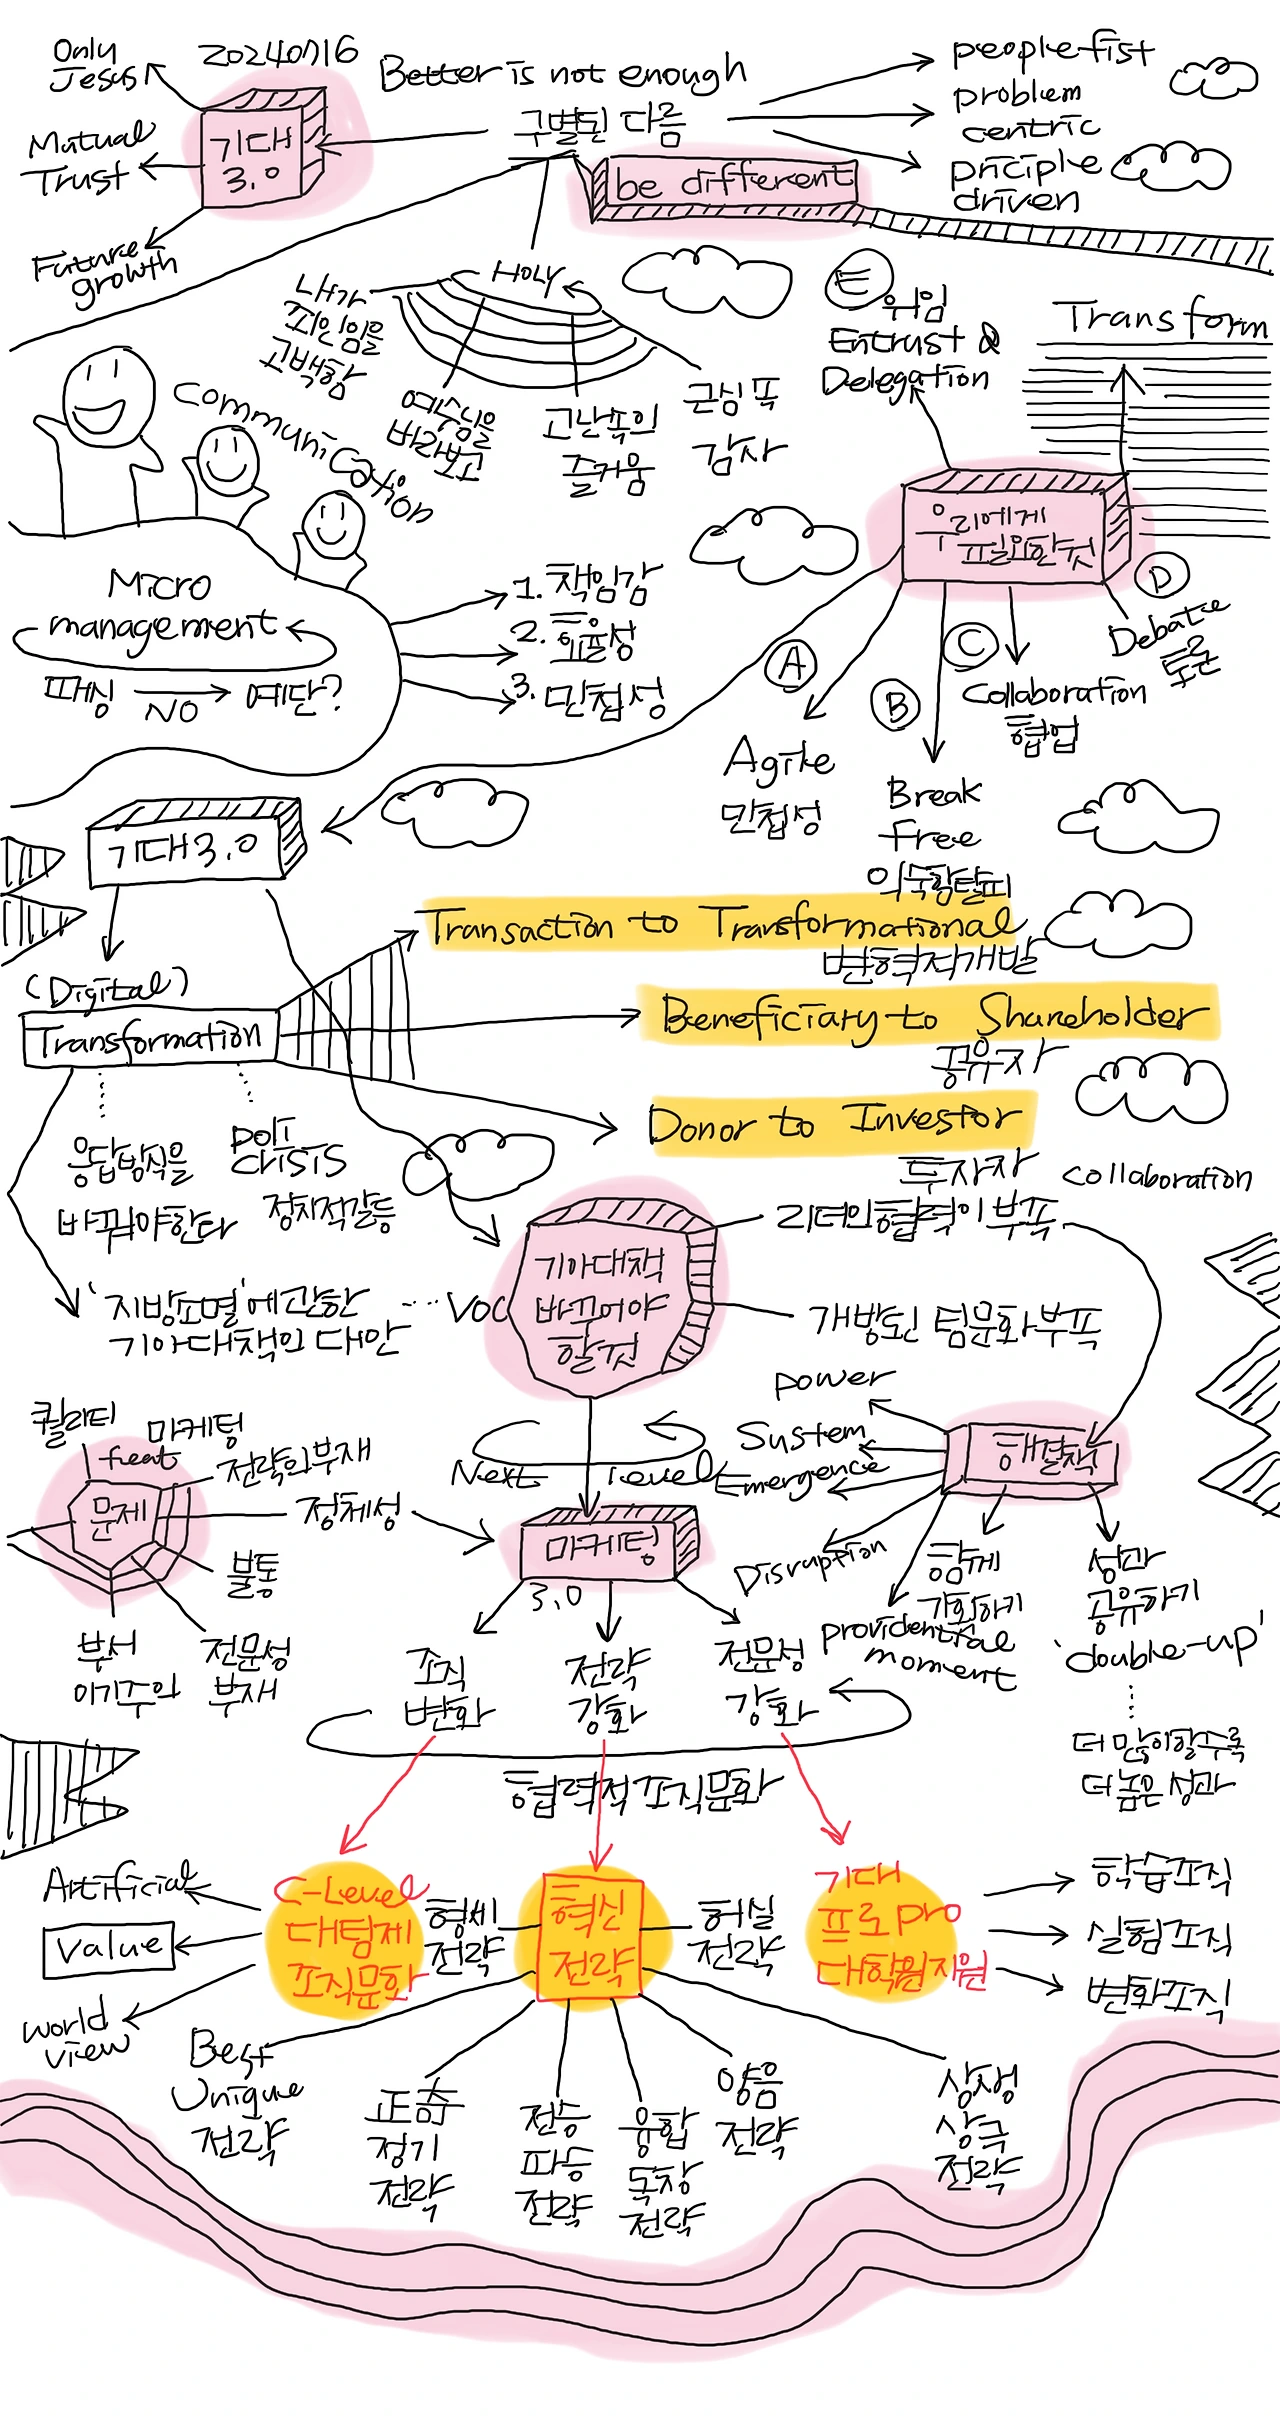 Only
Jesus
20240716
Better is not enough
구별된 다름
people fist
problem
centric
priciple
driven
기대
3.0
Mutual
Trust
Future
growth
be different
HOLY
내가
죄인임을
고백함
예수님을
바라보고
고난속의
즐거움
근심 폭
감사
E 위임
Entrust &
Delegation
Transform
communication
우리에게
필요한것
Micro
management
패싱 NO 예단?
1. 책임감
2. 효율성
3. 민첩성
A
Agile
민첩성
B
Break
free
익숙함탈피
C
Collaboration
협업
D
Debate
토론
기대3.0
(Digital)
Transformation
Transaction to Transformational
변혁적개발
Beneficiary to Shareholder
공유자
Donor to Investor
투자자
collaboration
응답방식을
바꿔야한다
politi
crisis
정치적갈등
'지방소멸'에관한
기아대책의 대안
VOC
기아대책
바꾸어야
할것
리더의협력이 부족
개방된 팀문화부족
퀄리티
feat
마케팅
전략의부재
문제
정체성
불통
부서
이기주의
전문성
부재
Next level
마케팅
3.0
power
System
Emergence
Disruption
providential
moment
해결책
함께
기획하기
성과
공유하기
'double-up'
더 많이할수록
더높은 성과
조직
변화
전략
강화
전문성
강화
협력적 조직문화
Artificial
Value
world
view
C-Level
대팀제
조직문화
형세
전략
혁신
전략
허실
전략
기대
프로 pro
대학원지원
학습조직
실험조직
변화조직
Best
Unique
전략
正奇
정기
전략
전승
파승
전략
융합
독창
전략
양음
전략
상생
상극
전략